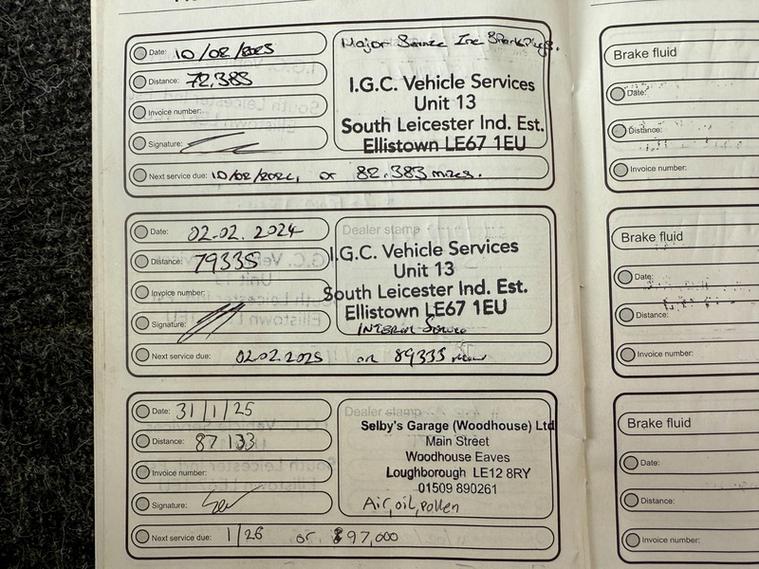 Date: 10/02/2023
Distance: 72,383
Invoice number:
Signature:
Next service due: 10/02/2024, or 82,383 miles.
Major Service Inc Spark Plugs.
I.G.C. Vehicle Services
Unit 13
South Leicester Ind. Est.
Ellistown LE67 1EU
Date: 02.02.2024
Distance: 79335
Invoice number:
Signature:
Next service due: 02.02.2025 or 89335 miles
Dealer stamp
I.G.C. Vehicle Services
Unit 13
South Leicester Ind. Est.
Ellistown LE67 1EU
INTERIM Service
Date: 31/1/25
Distance: 87 133
Invoice number:
Signature:
Next service due: 1/26 or 97,000
Dealer stamp
Selby's Garage (Woodhouse) Ltd
Main Street
Woodhouse Eaves
Loughborough LE12 8RY
01509 890261
Air, oil, pollen
Brake fluid
Date:
Distance:
Invoice number:
Brake fluid
Date:
Distance:
Invoice number:
Brake fluid
Date:
Distance:
Invoice number: